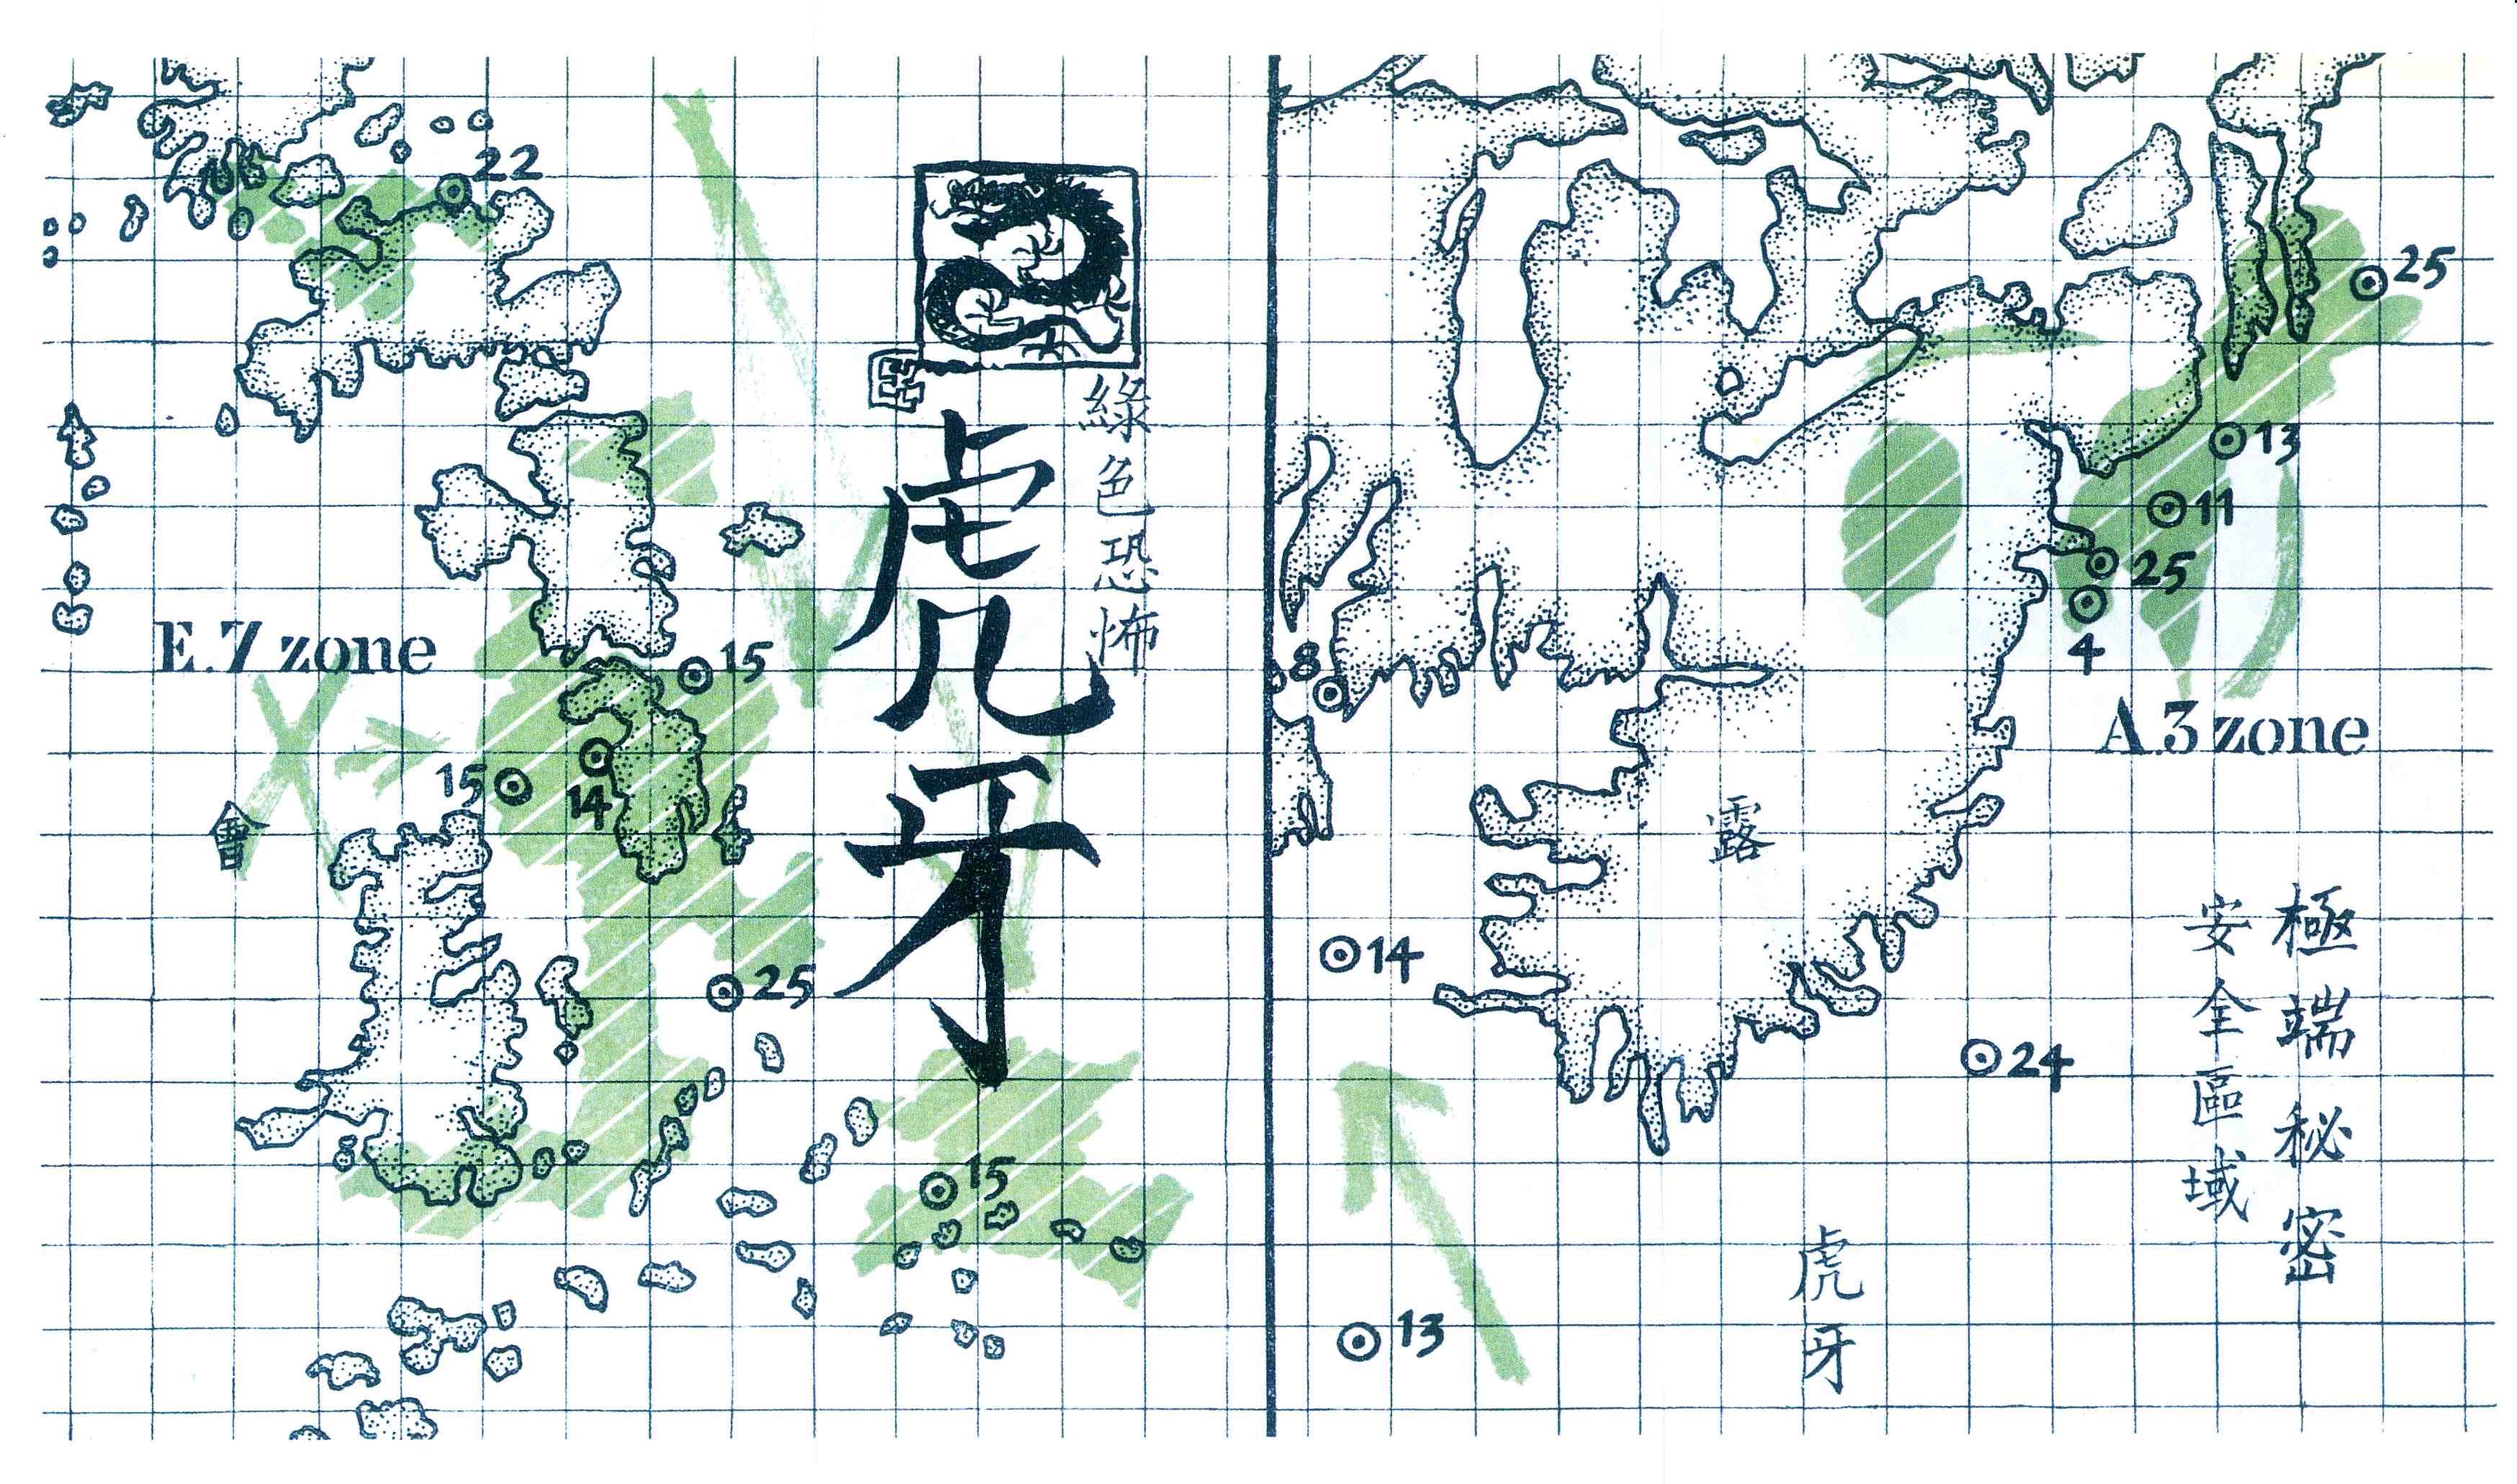 22
綠色恐怖
虎牙
E.7 zone
15
15
14
會
25
15
25
13
11
25
4
8
A.3 zone
露
14
24
極端秘密
安全區域
虎牙
13